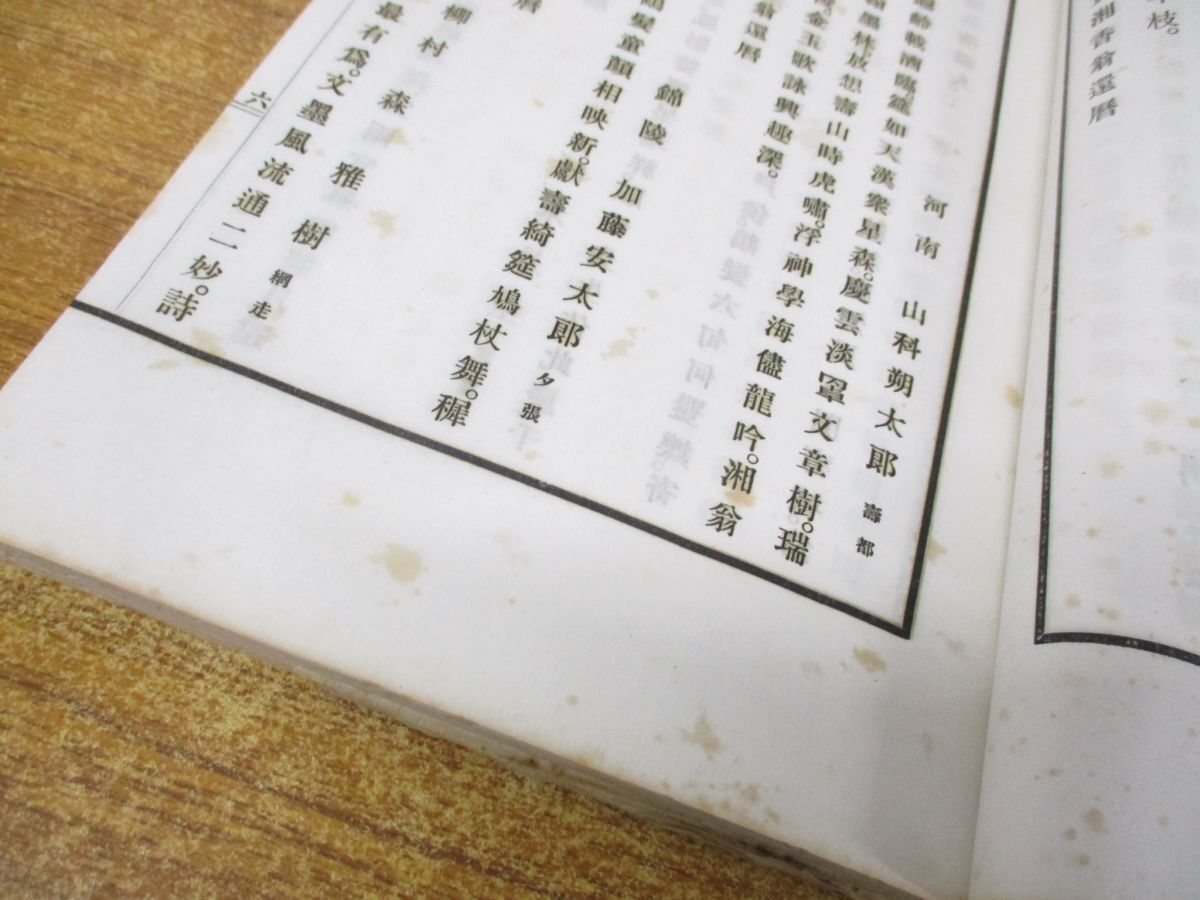 枝。
湘香翁還暦
河南 山科朔太郎 壽都
酒臨筵如天漢衆星森。慶雲淡罩文章樹。瑞
放想壽山時虎嘯。浮神學海儘龍吟。湘翁
金玉歌詠興趣深。
翁還暦
錦陵 加藤安太郎 夕張
童顔相映新。獻壽綺筵鳩杖舞。穉
暦
柳村 森雅樹 網走
最有爲。文墨風流通二妙。詩
六